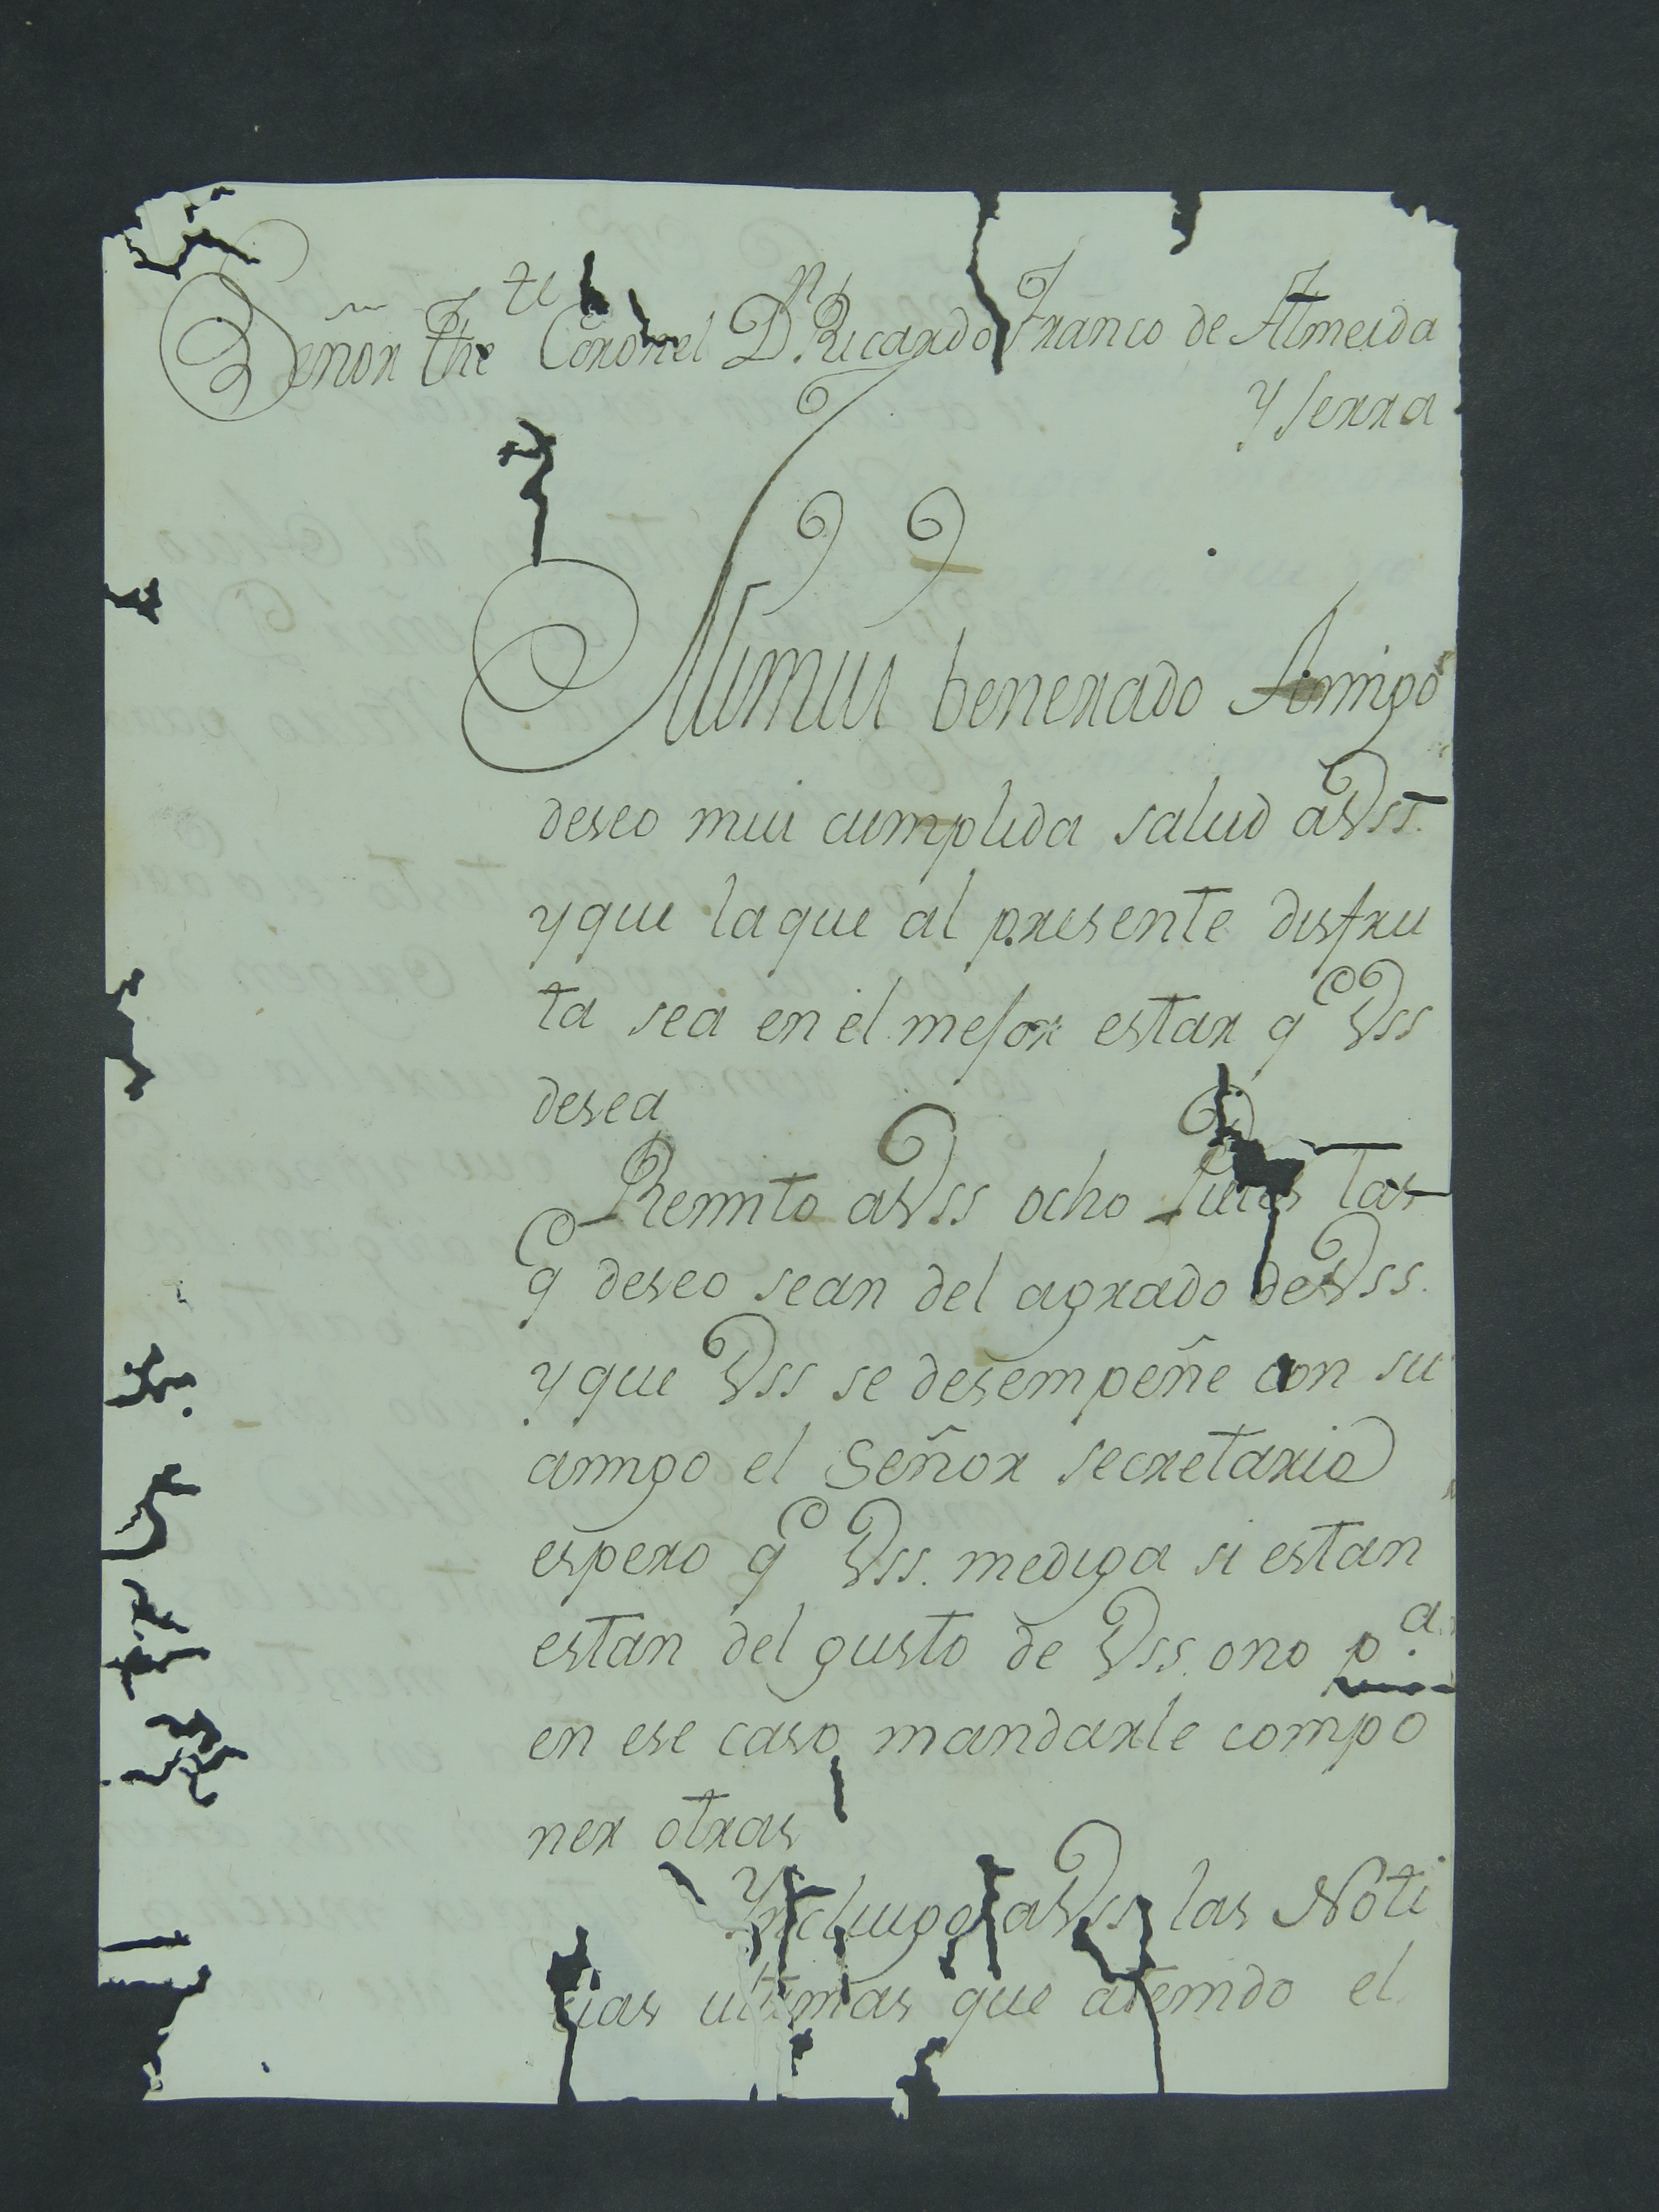 Señor The^te Coronel D^n. Ricardo Franco de Almeida
y serra
Mi mui benerado Amigo
deseo mui cumplida salud aVss.
yque laque al presente disfru
ta sea en él mejor estar q^e Vss
desea
Remito aVss ocho tas
q^e deseo sean del agrado deVss.
yque Vss se desempeñe con su
amigo el Señor secretario
espero q^e Vss. mediga si estan
estan del gusto de Vss. ono p^a.
en ese caso mandarle compo
ner otras
Yncluigo aVss las Noti
cias ultimas que atenido el